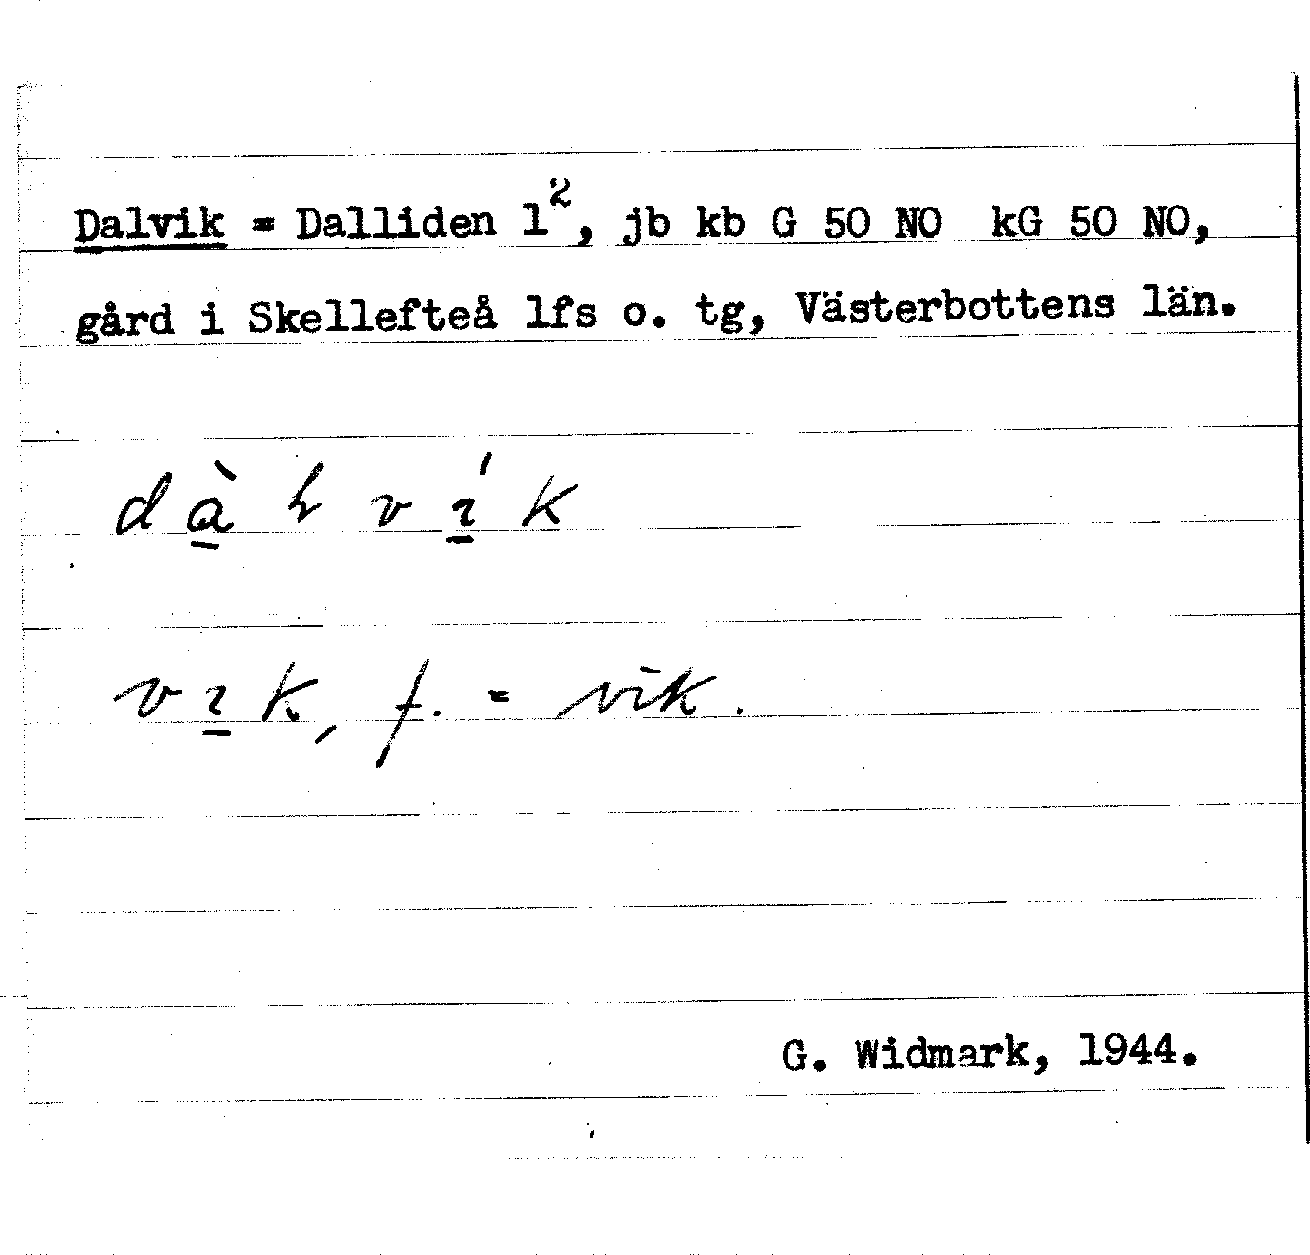 Dalvik = Dalliden 1², jb kb G 50 NO kG 50 NO,
gård i Skellefteå lfs o. tg, Västerbottens län.
vɩ̲k, f. = vik.
G. Widmark, 1944.